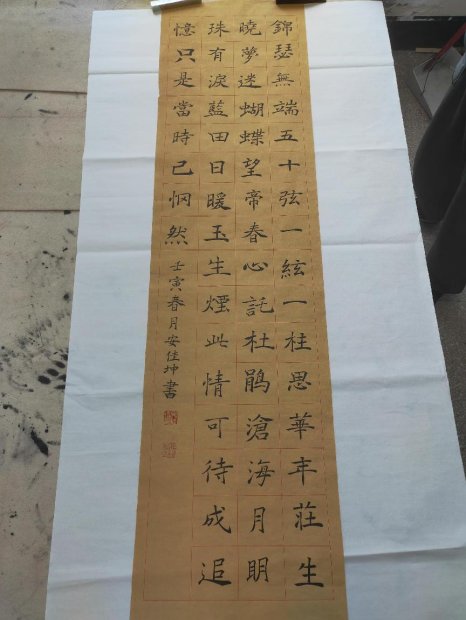 錦瑟無端五十弦一絃一柱思華年莊生
曉夢迷蝴蝶望帝春心託杜鵑滄海月明
珠有淚藍田日暖玉生煙此情可待成追
憶只是當時已惘然
壬寅春月安佳坤書